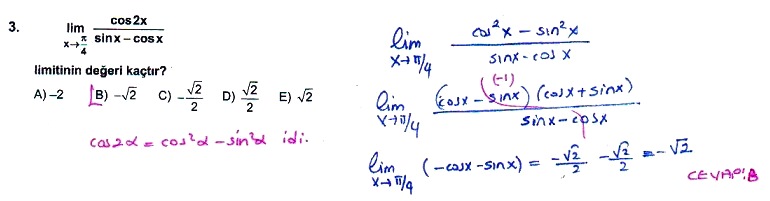 3. lim x→π/4 cos2x / sinx – cosx
limitinin değeri kaçtır?
A) –2 B) –√2 C) –√2/2 D) √2/2 E) √2
cos2α = cos²α – sin²α idi.
lim x→π/4 cos²x – sin²x / sinx - cosx
lim x→π/4 (cosx – sinx) (cosx + sinx) / sinx – cosx (-1)
lim x→π/4 (-cosx – sinx) = -√2/2 - √2/2 = -√2
CEVAP: B